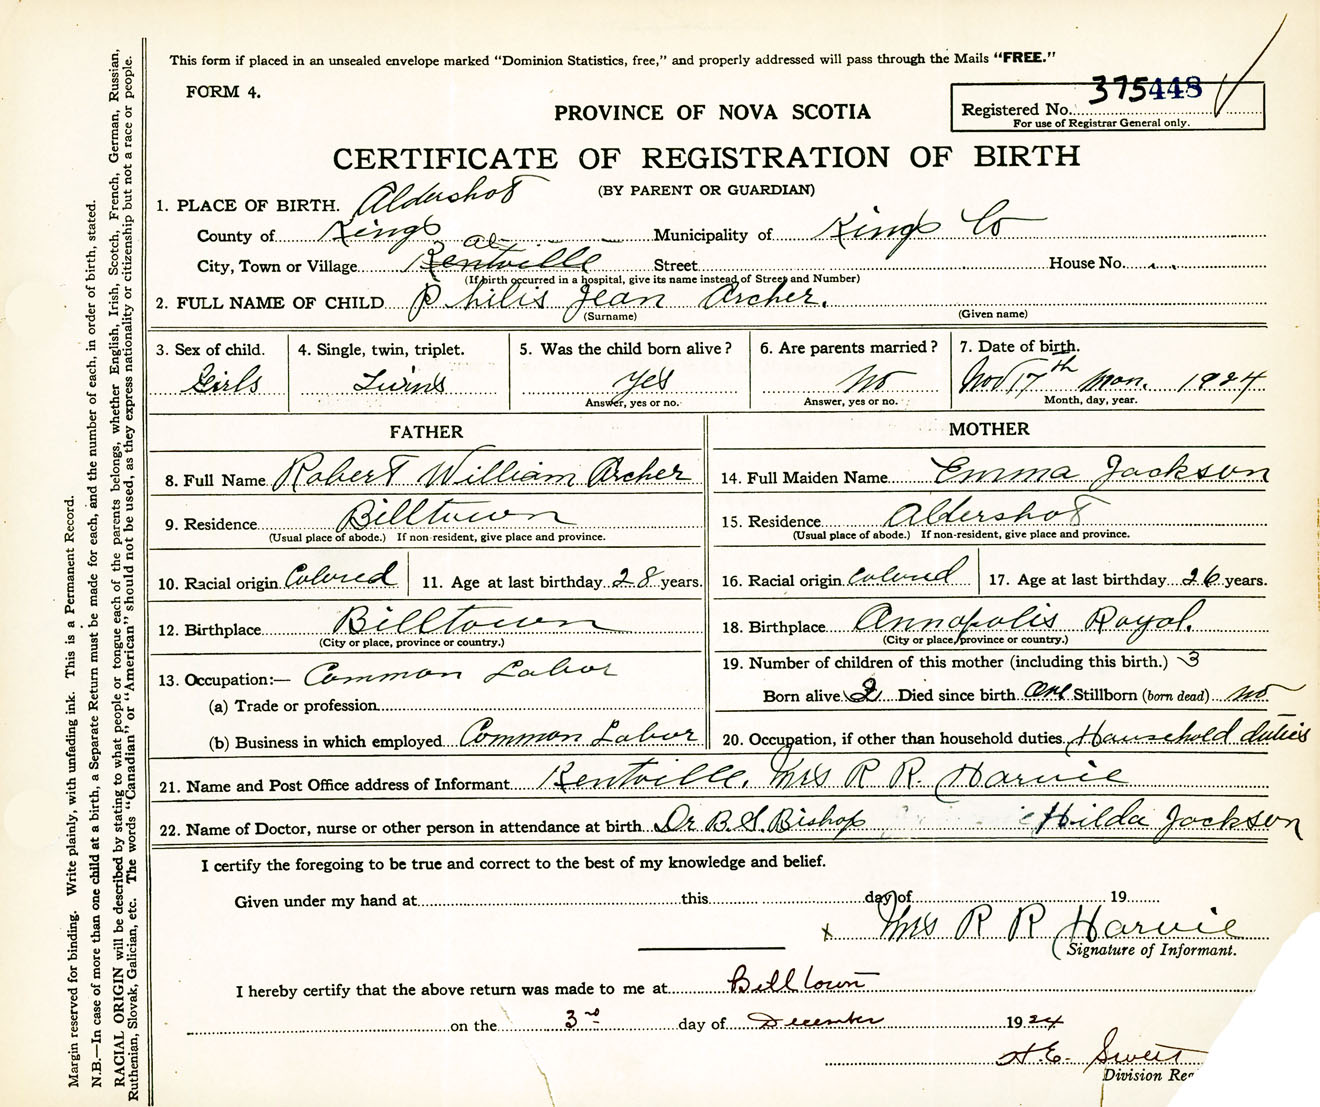 This form if placed in an unsealed envelope marked "Dominion Statistics, free," and properly addressed will pass through the Mails "FREE."
FORM 4.
PROVINCE OF NOVA SCOTIA
Registered No. 375448
For use of Registrar General only.
CERTIFICATE OF REGISTRATION OF BIRTH
(BY PARENT OR GUARDIAN)
1. PLACE OF BIRTH. Aldershot
County of Kings Municipality of Kings Co
City, Town or Village Kentville Street House No.
(If birth occurred in a hospital, give its name instead of Street and Number)
2. FULL NAME OF CHILD Philis Jean Archer.
(Surname) (Given name)
3. Sex of child. 4. Single, twin, triplet. 5. Was the child born alive? 6. Are parents married? 7. Date of birth.
Girls Twins Yes No Nov 17th Mon. 1924
Answer, yes or no. Answer, yes or no. Month, day, year.
FATHER MOTHER
8. Full Name Robert William Archer 14. Full Maiden Name Emma Jackson
9. Residence Billtown 15. Residence Aldershot
(Usual place of abode.) If non-resident, give place and province. (Usual place of abode.) If non-resident, give place and province.
10. Racial origin Colored 11. Age at last birthday 28 years. 16. Racial origin Colored 17. Age at last birthday 26 years.
12. Birthplace Billtown 18. Birthplace Annapolis Royal.
(City or place, province or country.) (City or place, province or country.)
13. Occupation:— Common Labor 19. Number of children of this mother (including this birth.) 3
(a) Trade or profession Born alive 2 Died since birth one Stillborn (born dead) no
(b) Business in which employed Common Labor 20. Occupation, if other than household duties Household duties
21. Name and Post Office address of Informant Kentville. Mrs R R. Harvie
22. Name of Doctor, nurse or other person in attendance at birth Dr B. S. Bishop Hilda Jackson
I certify the foregoing to be true and correct to the best of my knowledge and belief.
Given under my hand at this day of 19
x Mrs R R Harvie
Signature of Informant.
I hereby certify that the above return was made to me at Billtown
on the 3rd day of December 1924
H. E. Sweet
Division Reg
Margin reserved for binding. Write plainly, with unfading ink. This is a Permanent Record.
N.B.—In case of more than one child at a birth, a Separate Return must be made for each, and the number of each, in order of birth, stated.
RACIAL ORIGIN will be described by stating to what people or tongue each of the parents belongs, whether English, Irish, Scotch, French, German, Russian,
Ruthenian, Slovak, Galician, etc. The words "Canadian" or "American" should not be used, as they express nationality or citizenship but not a race or people.